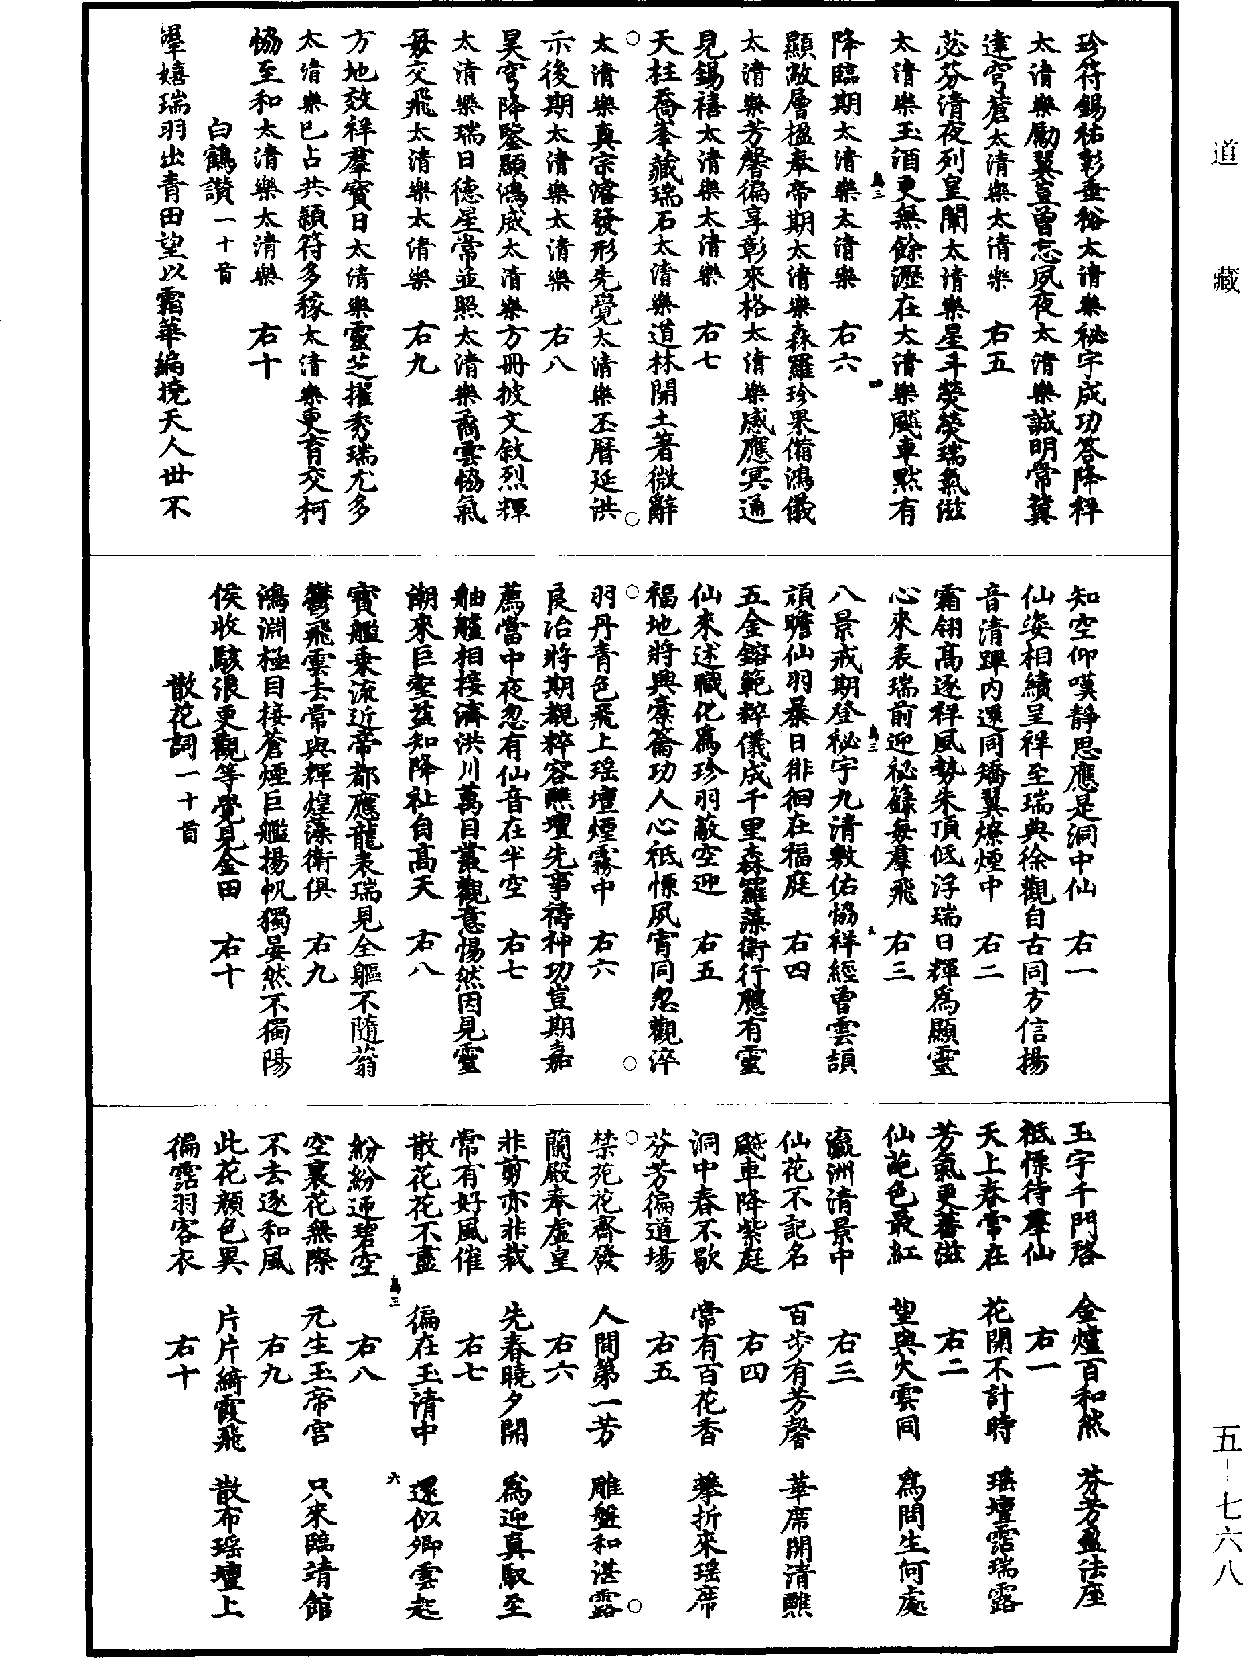 道藏
珍符錫祐彰垂裕太清樂祕宇成功答降祥
太清樂勵翼豈曾忘夙夜太清樂誠明常冀
達穹蒼太清樂太清樂　右五
苾芬清夜列皇闈太清樂星斗熒熒瑞氣滋
太清樂玉酒更無餘瀝在太清樂飈車黙有
降臨期太清樂太清樂　右六
顯敞層楹奉帝期太清樂森羅珍果備鴻儀
太清樂芳馨徧享彰來格太清樂感應冥通
見錫禧太清樂太清樂　右七
天柱喬峯藏瑞石太清樂道林開土著微辭
太清樂真宗濬發形先覺太清樂丕曆延洪
示後期太清樂太清樂　右八
昊穹降鑒顯鴻威太清樂方冊披文敘烈輝
太清樂瑞日德星常並照太清樂喬雲恊氣
每交飛太清樂太清樂　右九
方地效祥羣寶日太清樂靈芝擢秀瑞尤多
太清樂已占共穎符多稼太清樂更育交柯
恊至和太清樂太清樂　右十
白鶴讚一十首
瑞羽出青田望以霜華編挠天人世不
知空仰嘆靜思應是洞中仙　右一
仙姿相續呈祥至瑞典徐觀自古同方信揚
音清蹕内還同矯翼燎煙中　右二
霜翎高逐祥風勢朱頂低浮瑞日輝爲顯靈
心來表瑞前迎祕籙每羣飛　右三
八景戒期登祕宇九清敷佑協祥經曾雲頡
頏瞻仙羽暴日徘徊在福庭　右四
五金鎔範粹儀成千里森羅藻衛行應有靈
仙來述職化爲珍羽蔽空迎　右五
福地將興寨籥功人心祇慄夙宵同忽觀淬
羽丹青色飛上瑶壇煙霧中　右六
良冶將期觀粹容醮壇先事禱神功豈期嘉
薦當中夜忽有仙音在半空　右七
舳艫相接濟洪川萬目叢觀意惕然因見靈
潮來巨壑益知降祉自高天　右八
寶艦乗流近帝都應龍表瑞見全軀不隨蓊
鬱飛雲去常與輝煌藻衛俱　右九
鴻淵極目接蒼煙巨艦揚帆獨晏然不獨陽
侯收駭浪更觀等覺見金田　右十
散花詞一十首
玉宇千門啓　金爐百和然　芬芳盈法座
祇慄待羣仙　右一
天上春常在　花開不計時　瑶壇霑瑞露
芳氣更蕃滋　右二
仙葩色最紅　望與火雲同　爲問生何處
瀛洲清景中　右三
仙花不記名　百步有芳馨　華席開清醮
飈車降紫庭　右四
洞中春不歇　常有百花香　攀折來瑶席
芬芳徧道場　右五
禁苑花齊發　人間第一芳　雕盤和湛露
蘭殿奉虛皇　右六
非剪亦非栽　先春曉夕開　爲迎真馭至
常有好風催　右七
散花花不盡　徧在玉清中　還似卿雲起
紛紛迊碧空　右八
空裏花無際　元生玉帝宫　只來臨靖館
不去逐和風　右九
此花顔色異　片片綺霞飛　散布瑶壇上
徧霑羽客衣　右十
五－七六八